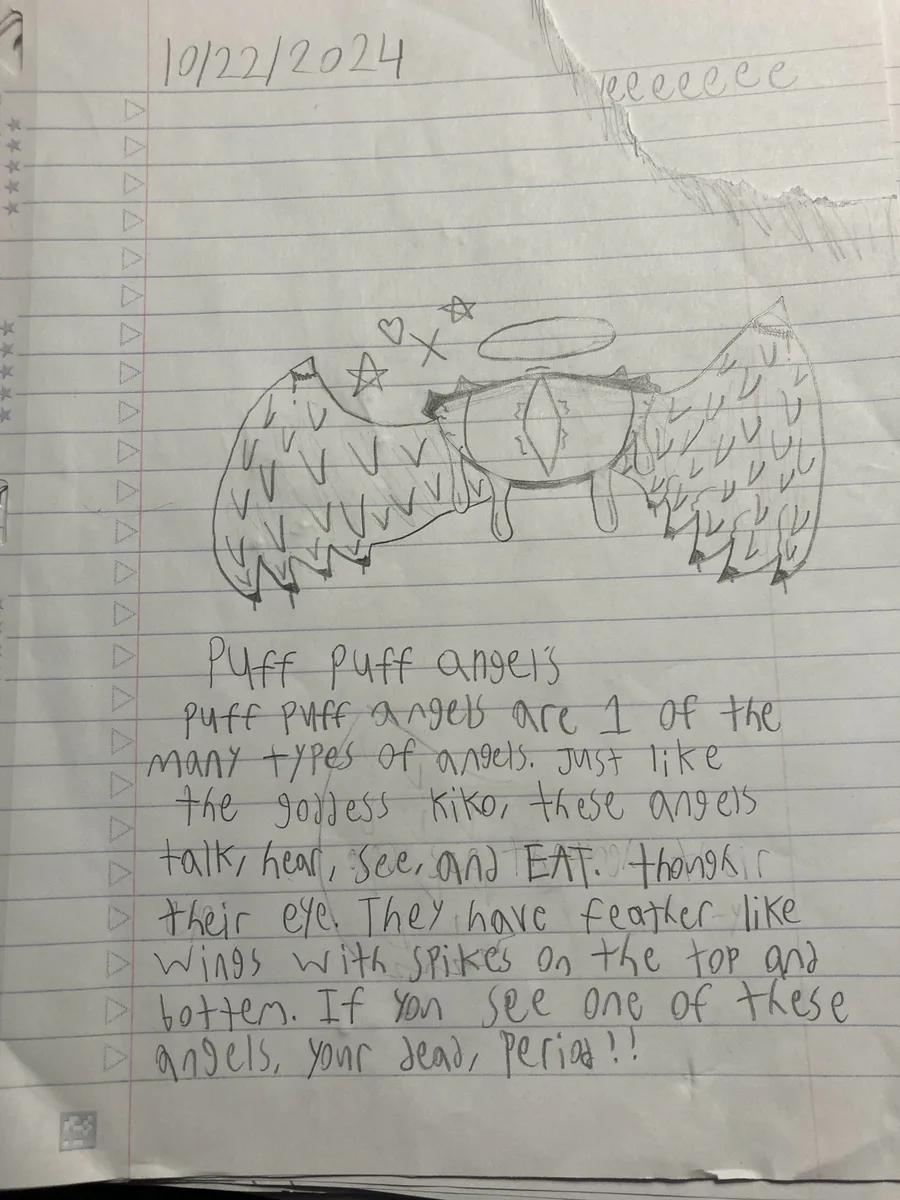 10/22/2024
eeeeeee
Puff puff angels
puff puff angels are 1 of the
many types of angels. Just like
the goddess kiko, these angels
talk, hear, see, and EAT.
their eye. They have feather like
wings with spikes on the top and
bottem. If you see one of these
angels, your dead, period!!